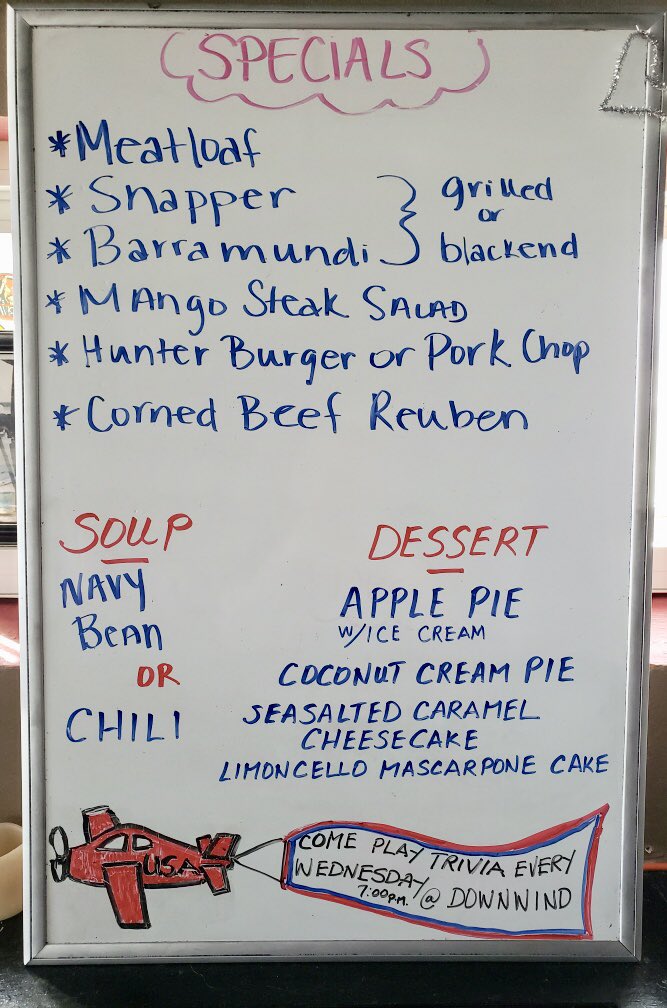 SPECIALS
* Meatloaf
* Snapper } grilled
or
* Barramundi } blackend
* MAngo Steak SALAD
* Hunter Burger or Pork Chop
* Corned Beef Reuben
SOUP
NAVY
BeAn
OR
CHILI
DESSERT
APPLE PIE
W/ICE CREAM
COCONUT CREAM PIE
SEASALTED CARAMEL
CHEESECAKE
LIMONCELLO MASCARPONE CAKE
USA
COME PLAY TRIVIA EVERY
WEDNESDAY @ DOWNWIND
7:00P.M.